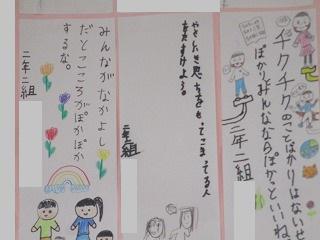 チクチクのことばかりはないせ
ぽかりとみんなならぽかっといいね、
二年二組
やさしい思いをもってこまってる人
をたすけよう。
二年二組
みんながなかよし
だとこころがぽかぽか
するな。
二年二組